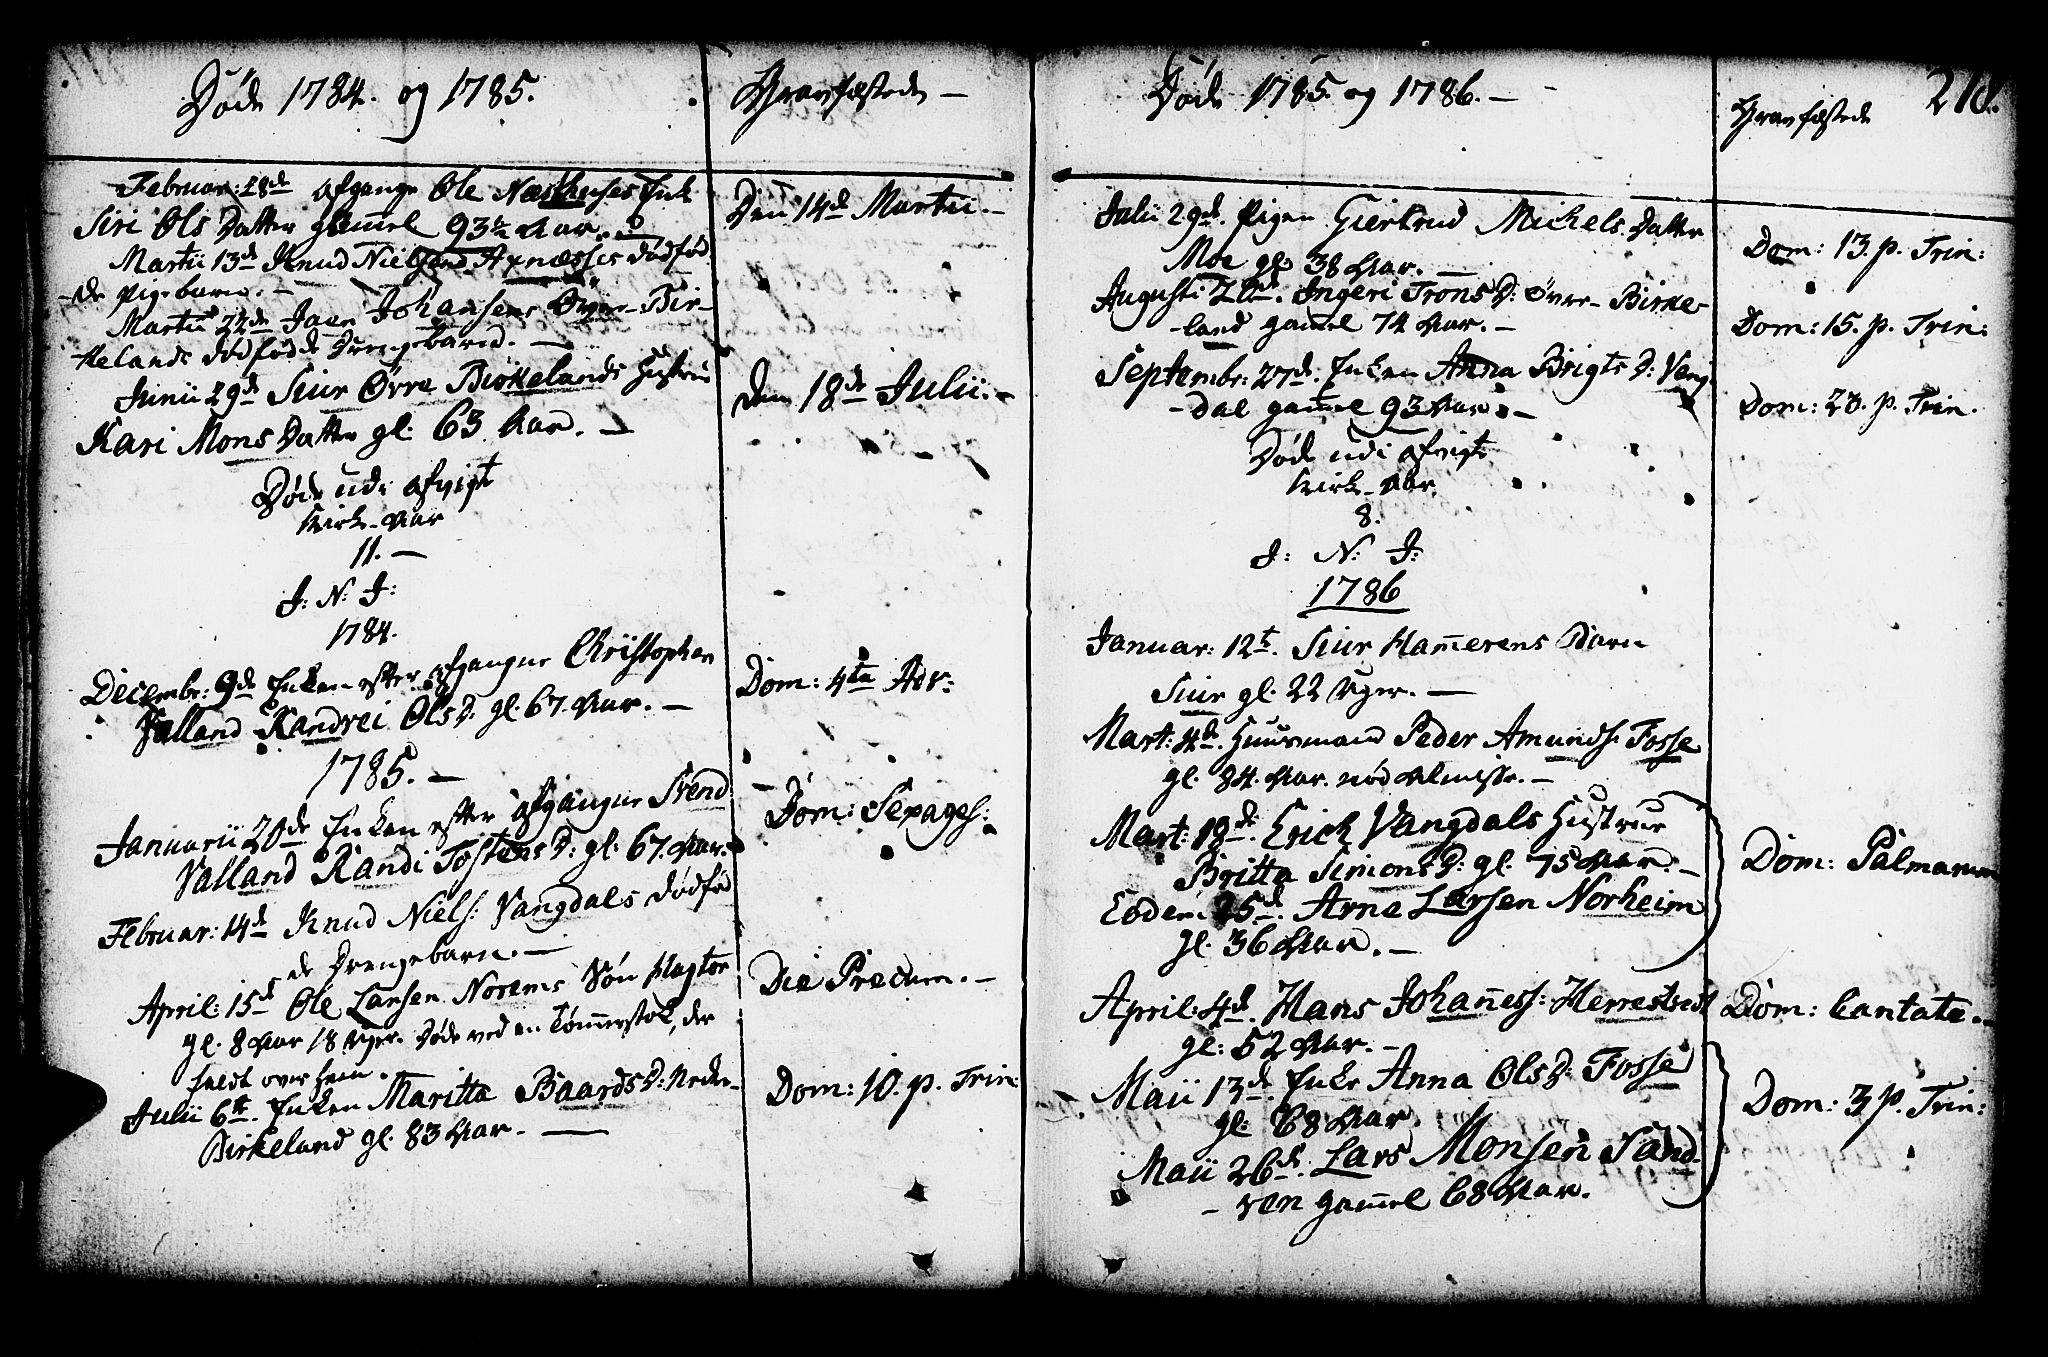 Døde 1784. og 1785.
Gravfæstede —
Februar: 28de afgangne Ole Næsthuses Enke
Siri Ols Datter gammel 93½ Aar. —
Den 14de Martii. —
Martii 13de Knud Nielsens Axnæsses dødfød-
-de pigebarn. —
Martii 22de Johansens Øvre-Bir-
kelands dødfødde Drengebarn. —
Junii 29de Siur Øvre Birkelands Hustrue
Kari Mons Datter gl. 63 Aar. —
Den 18de Julii. —
Døde udi afvigt
Kirke-Aar
11. —
J: N: J:
1784.
Decembr: 9de Enken efter afgangne Christopher
Valland Randvei Ols D: gl. 67. Aar. —
Dom: 4ta Adv:
1785. —
Januarii 20de Enken efter afgangne Svend
Valland Randi Tostens D: gl. 67. Aar. —
Dom: Sexages:
Februar: 14de Knud Niels: Vangdals dødfød
de Drengebarn. —
April: 15de Ole Larsen Norems Søn Hagtor
gl. 8 Aar 18 Uger. Døde ved en Tømmerstok, der
faldt over ham.
Die Precum. —
Julii 6te. Enken Maritta Baards D: Nedre-
Birkeland gl. 83 Aar. —
Dom: 10. p. Trin:
Døde 1785 og 1786. —
Gravfæstede
218.
Julii 29de. Pigen Giertrud Michels Datter
Moe gl. 38 Aar. —
Dom: 13. p. Trin:
Augusti Ingeri Trons D: Øvre-Birke-
-land gammel 74 Aar. —
Dom: 15. p. Trin:
Septembr: 27de. Enken Anna Brigts D: Vang-
-dal gammel 93 Aar. —
Dom: 23. p. Trin.
Døde udi afvigte
Kirke-Aar.
8.
J: N: J:
1786
Januar: 12te. Siur Hammerens Barn
Siur gl. 22 Uger. —
Mart: 4de. Huusmand Peder Amunds: Fosse
gl. 84. Aar. nød Almisse. —
Mart: 18de. Erich Vangdals Hustrue
Britta Simons D: gl. 75 Aar. —
Eodem 25de. Arne Larsen Norheim
gl. 36 Aar. —
Dom: Palmarum
April: 4de. Hans Johanness: Herrestvedt
gl: 52 Aar. —
Dom: Cantate. —
Maii 13de. Enke Anna Ols D: Fosse
gl: 68 Aar.
Maii 26de. Lars Monsen Sand-
-ven gammel 68 Aar.
Dom: 3 p. Trin: